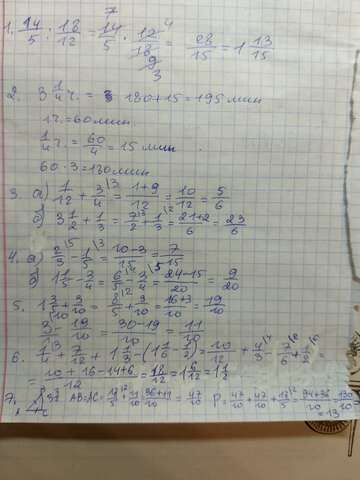 1. 14/5 : 18/12 = 14/5 · 12/18 = 28/15 = 1 13/15
2. 3 1/4 ч. = 180 + 15 = 195 мин
1ч. = 60 мин
1/4 ч. = 60/4 = 15 мин
60 · 3 = 180 мин
3. а) 1/12 + 3/4 = 1+9/12 = 10/12 = 5/6
б) 3 1/2 + 1/3 = 7/2 + 1/3 = 21+2/6 = 23/6
4. а) 2/3 - 1/5 = 10-3/15 = 7/15
б) 1 1/5 - 3/4 = 6/5 - 3/4 = 24-15/20 = 9/20
5. 1 3/5 + 3/10 = 8/5 + 3/10 = 16+3/10 = 19/10
3 - 19/10 = 30-19/10 = 11/10
6. 1/4 + 7/12 + 1 1/3 - (1 1/6 - 1/2) = 10/12 + 4/3 - 7/6 + 1/2 =
= 10 + 16 - 14 + 6/12 = 18/12 = 1 6/12 = 1 1/2
7. AB=AC=